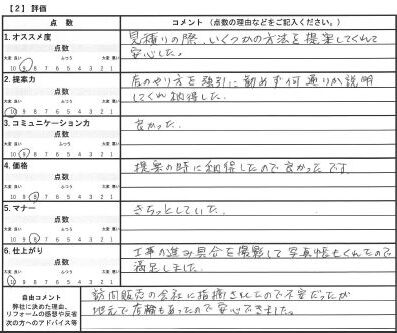 【2】評価
点 数
コメント（点数の理由などをご記入ください。）
1. オススメ度
点数
大変 良い ふつう 大変 悪い
10 9 8 7 6 5 4 3 2 1
見積りの際、いくつかの方法を提案してくれて
安心した。
2. 提案力
点数
大変 良い ふつう 大変 悪い
10 9 8 7 6 5 4 3 2 1
店のやり方を強引に勧めず何通りか説明
してくれ納得した。
3. コミュニケーション力
点数
大変 良い ふつう 大変 悪い
10 9 8 7 6 5 4 3 2 1
良かった。
4. 価格
点数
大変 良い ふつう 大変 悪い
10 9 8 7 6 5 4 3 2 1
提案の時に納得したので良かったです
5. マナー
点数
大変 良い ふつう 大変 悪い
10 9 8 7 6 5 4 3 2 1
きちっとしていた。
6. 仕上がり
点数
大変 良い ふつう 大変 悪い
10 9 8 7 6 5 4 3 2 1
工事の進み具合を撮影して写真帳もくれたので
満足しました。
自由コメント
弊社に決めた理由、
リフォームの感想や反省
次の方へのアドバイス等
訪問販売の会社に指摘されたので不安だったが
地元で店舗もあったので安心できました。